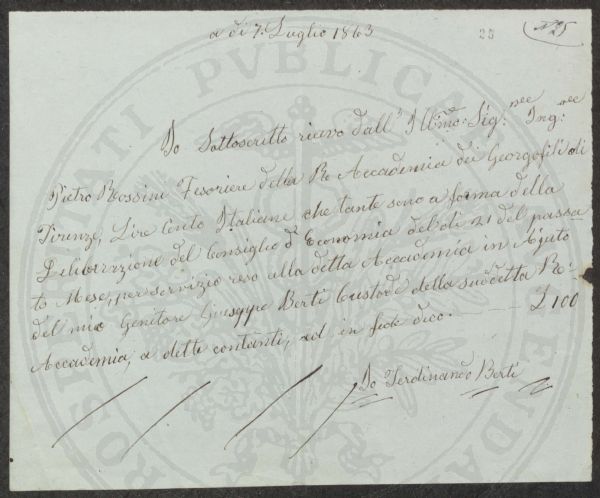 a di 7: Luglio 1863
23
N 25
Io Sottoscritto ricevo dall' Illmo. Sig.re Ing.re
Pietro Rossini Tesoriere della R. Accademia dei Georgofili di
Firenze, Lire Cento Italiane che tante sono a forma della
Deliberazione del Consiglio d'Economia del di 21 del passa
to Mese, per servizio reso alla detta Accademia in Ajuto
del mio Genitore Giuseppe Berti Custode della suddetta R.
Accademia, a detti contanti, ad in fede dico. £ 100
Io Ferdinando Berti
PROSPERITATI PUBLICAE